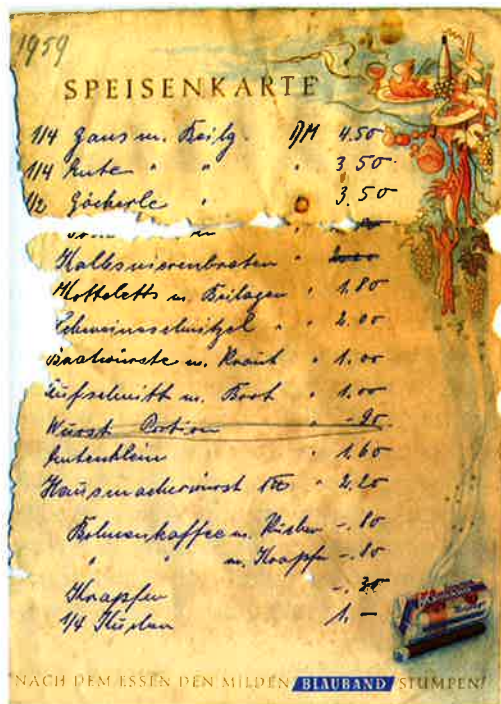 1959
SPEISENKARTE
1/4 Gans m. Beilg. DM 4.50
1/4 Ente " " " 3.50
1/2 Göckerle " " 3.50
Kalbsnierenbraten "
Kotteletts m. Beilagen " 1.80
Schweinsschnitzel " " 2.00
Bratwürste m. Kraut " 1.00
Aufschnitt m. Brot " 1.00
Wurst Portion " -.90
Entenklein " 1.60
Hausmacherwurst " 2.20
Bohnenkaffee m. Kuchen -.80
" " m. Krapfen -.80
Krapfen -.30
1/4 Kuchen 1.—
NACH DEM ESSEN DEN MILDEN BLAUBAND STUMPEN!